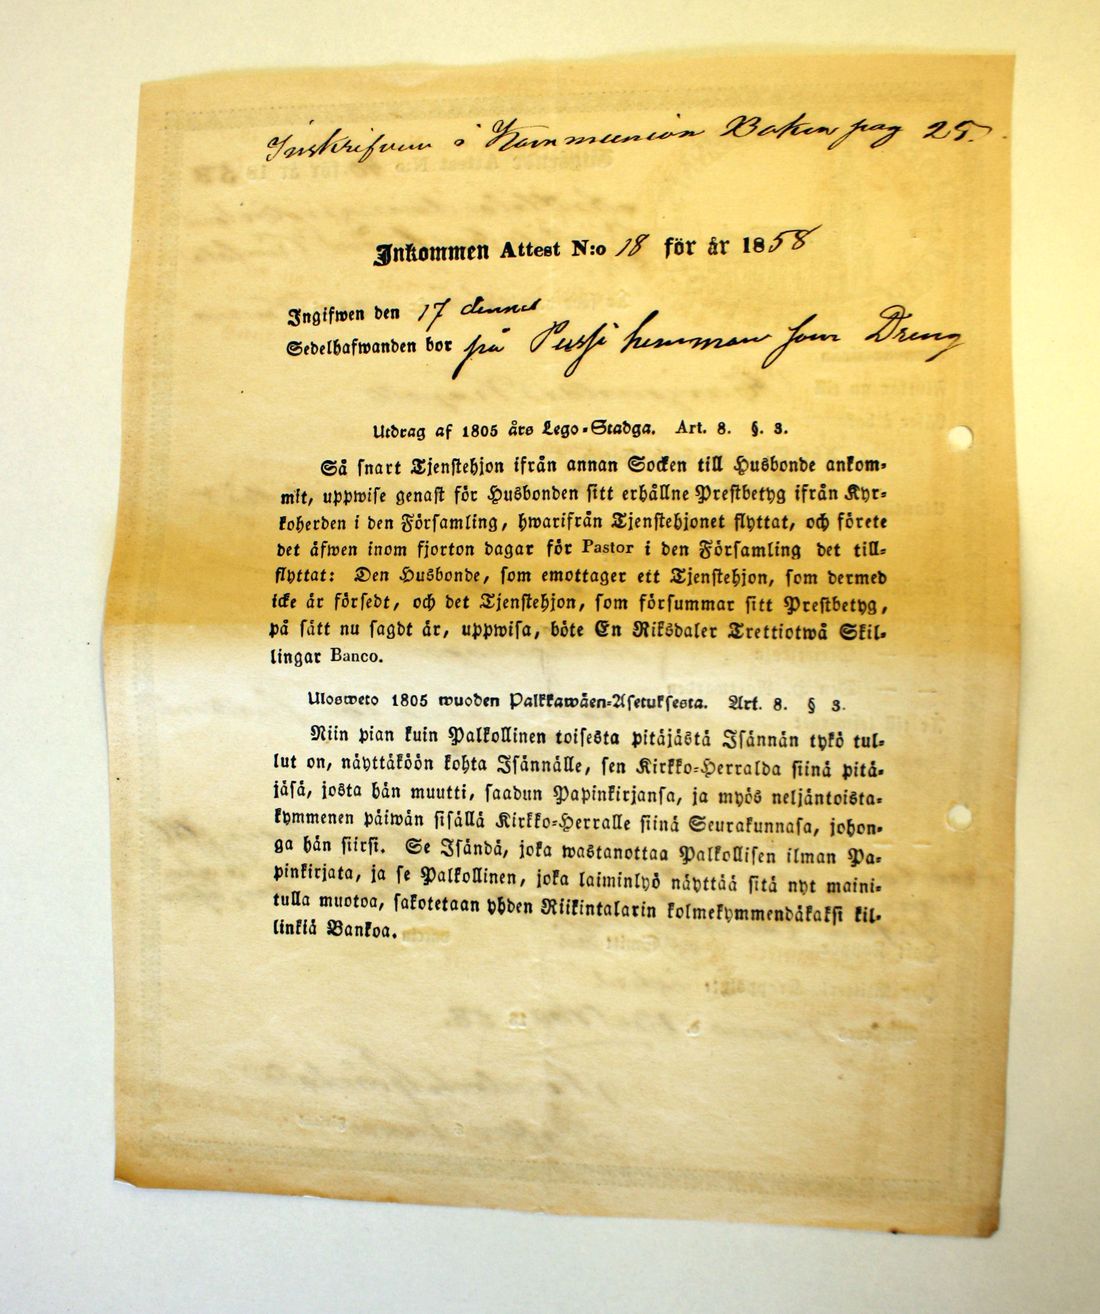 Inskrifven i Kommunion Boken pag 25.
Inkommen Attest N:o 18 för år 1858
Ingifwen den 17 dennes
Sedelhafwanden bor på Pussi hemman som Dreng
Utdrag af 1805 års Lego-Stadga. Art. 8. §. 3.
Så snart Tjenstehjon ifrån annan Socken till Husbonde ankom-
mit, uppwise genast för Husbonden sitt erhållne Prestbetyg ifrån Kyr-
koherden i den Församling, hwarifrån Tjenstehjonet flyttat, och förete
det äfwen inom fjorton dagar för Pastor i den Församling det till-
flyttat: Den Husbonde, som emottager ett Tjenstehjon, som dermed
icke är försedt, och det Tjenstehjon, som försummar sitt Prestbetyg,
på sätt nu sagdt är, uppwisa, böte En Riksdaler Trettiotwå Skil-
lingar Banco.
Ulosweto 1805 wuoden Palkkawäen-Asetuksesta. Art. 8. § 3.
Niin pian kuin Palkollinen toisesta pitäjästä Isännän tykö tul-
lut on, näyttäköön kohta Isännälle, sen Kirkko-Herralda siinä pitä-
jäsä, josta hän muutti, saadun Papinkirjansa, ja myös neljäntoista-
kymmenen päiwän sisällä Kirkko-Herralle siinä Seurakunnasa, johon-
ga hän siirsi. Se Isändä, joka wastanottaa Palkollisen ilman Pa-
pinkirjata, ja se Palkollinen, joka laiminlyö näyttää sitä nyt maini-
tulla muotoa, sakotetaan yhden Riikintalarin kolmekymmendäkaksi kil-
linkiä Bankoa.